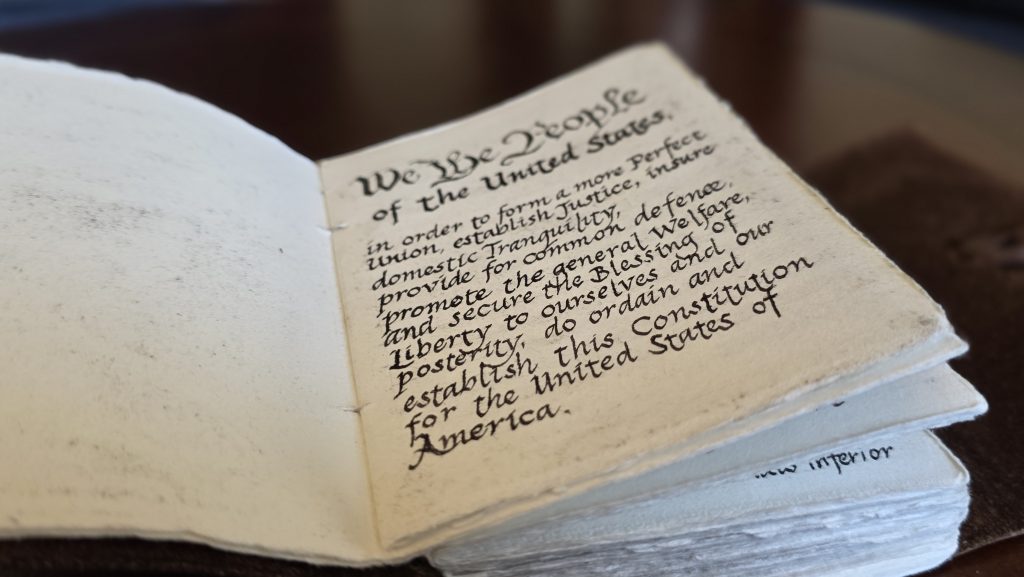 We The People
of the United States,
in order to form a more Perfect
Union, establish Justice, insure
domestic Tranquility,
provide for common defence,
promote the general Welfare,
and secure the Blessing of
Liberty to ourselves and our
posterity, do ordain and
establish this Constitution
for the United States of
America.
inferior